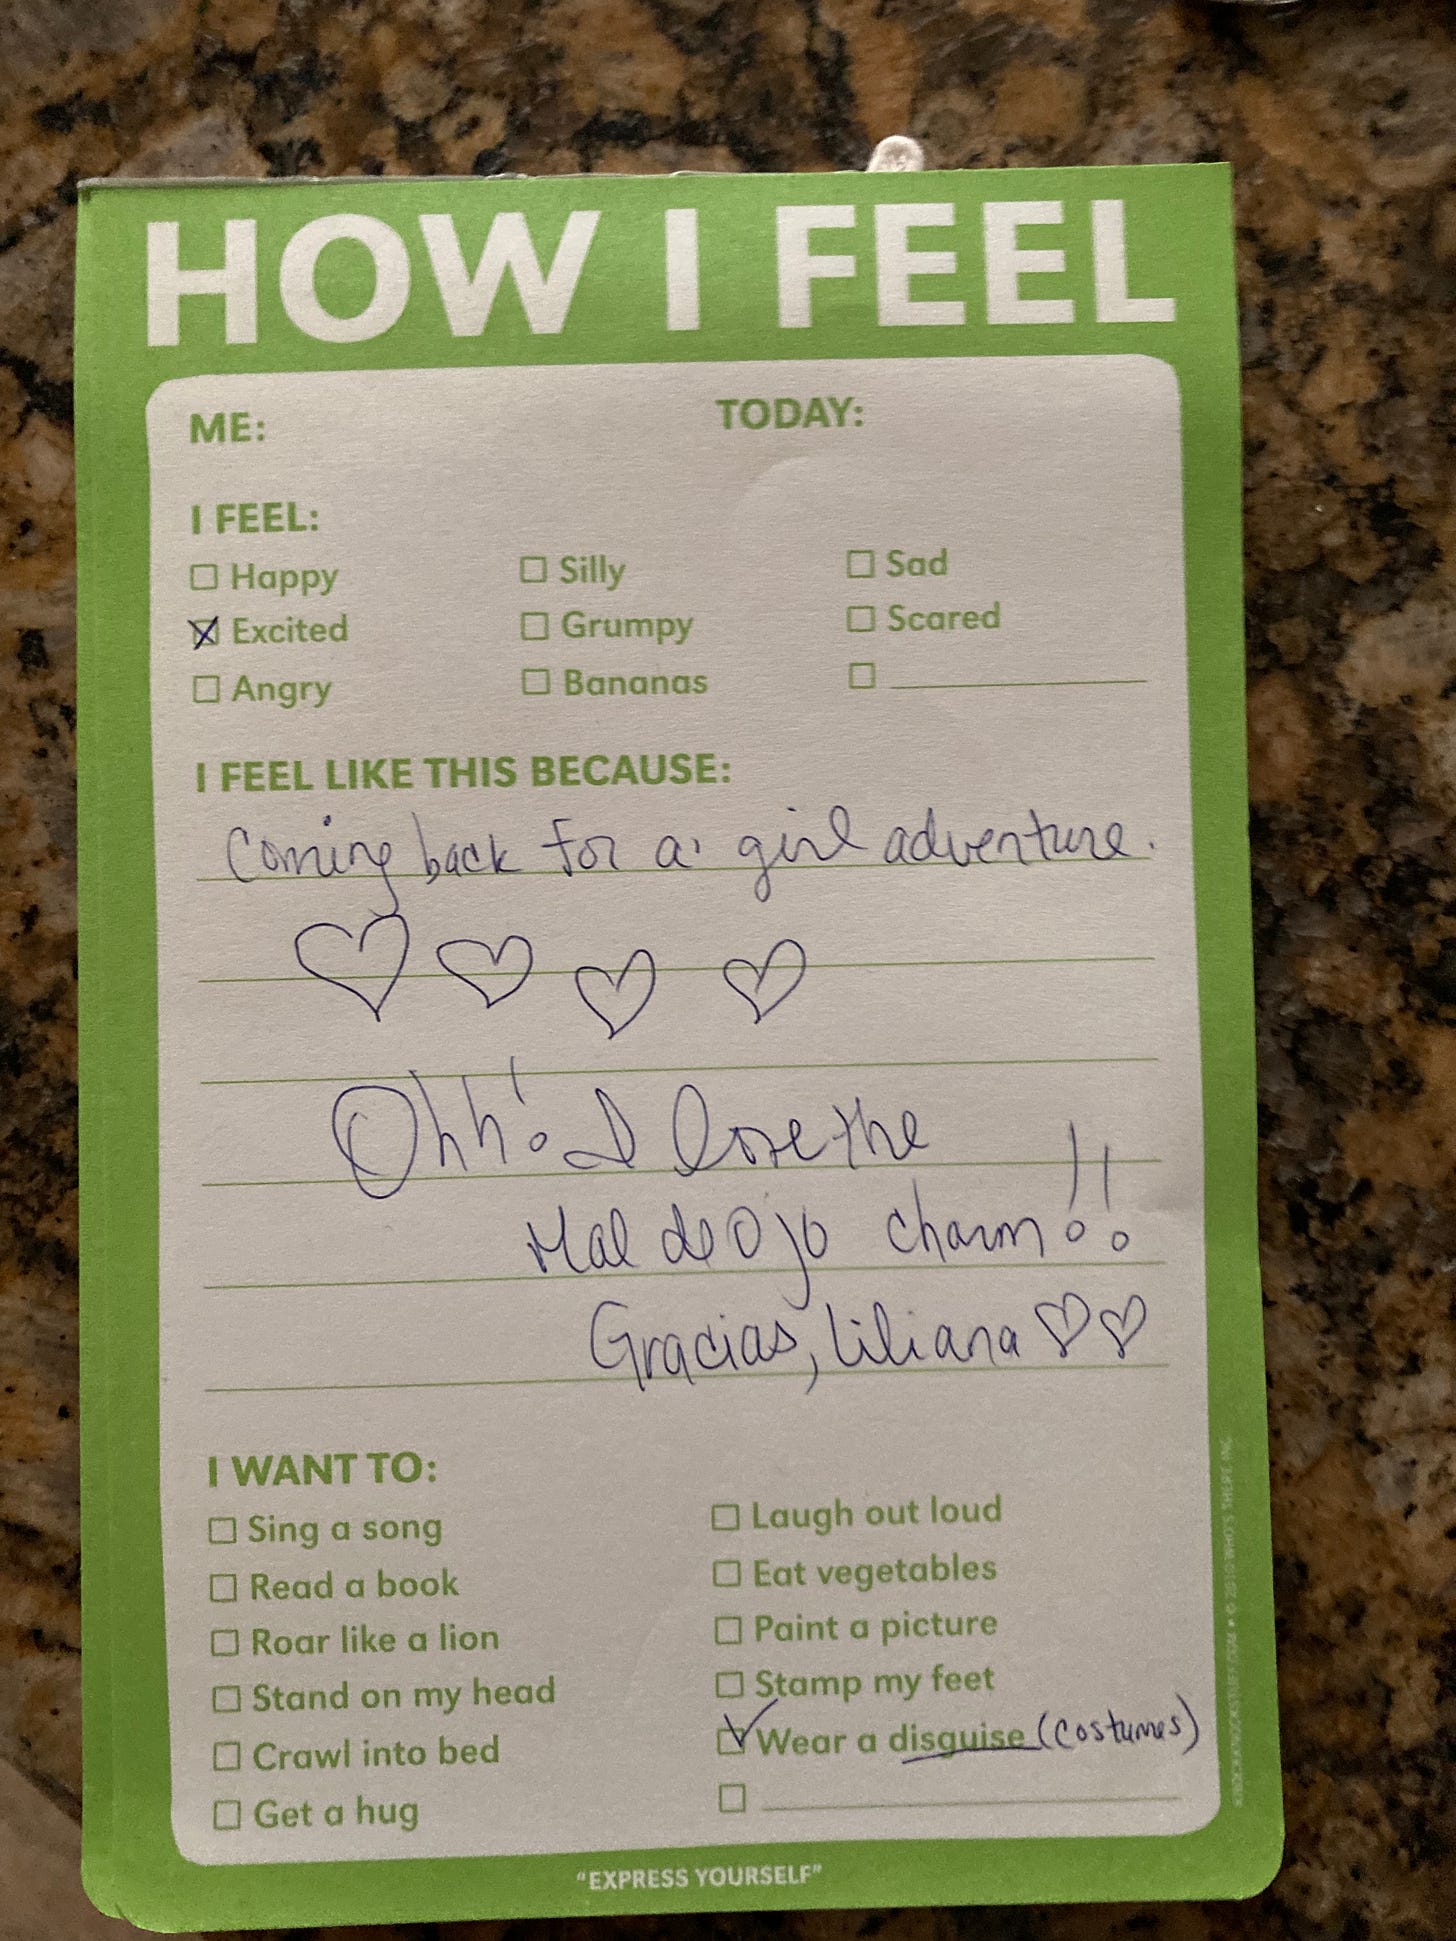 HOW I FEEL
ME: TODAY:
I FEEL:
Happy Silly Sad
Excited Grumpy Scared
Angry Bananas
I FEEL LIKE THIS BECAUSE:
Coming back for a girl adventure.
Ohh! I love the
Mal de Ojo charm!!
Gracias, Liliana
I WANT TO:
Sing a song Laugh out loud
Read a book Eat vegetables
Roar like a lion Paint a picture
Stand on my head Stamp my feet
Crawl into bed Wear a disguise (costumes)
Get a hug
"EXPRESS YOURSELF"
KNOCKKNOCKSTUFF.COM • © 2019 WHO'S THERE INC.